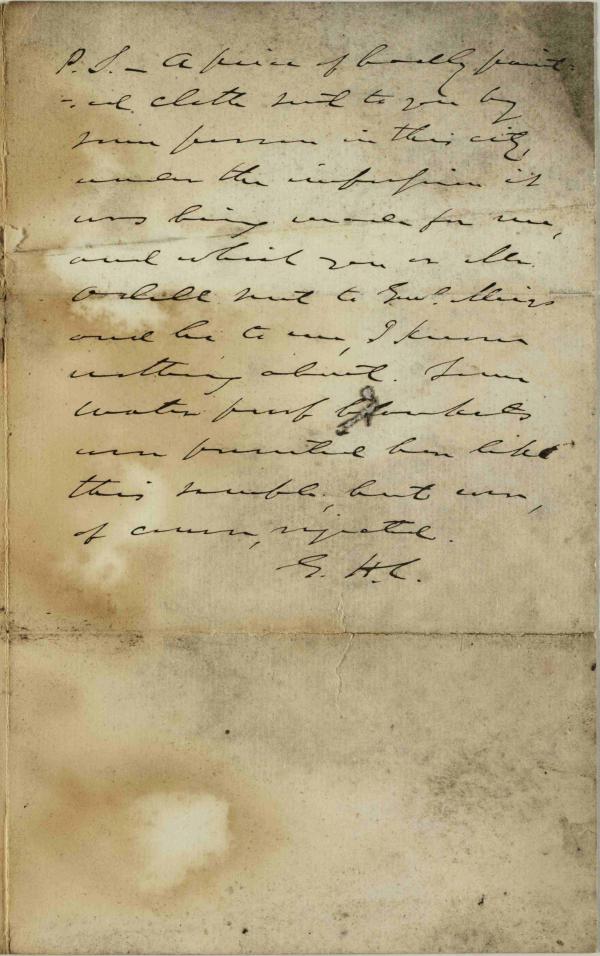 P.S. — A piece of badly paint-
-ed cloth sent to you by
some person in this city,
under the impression it
was being made for me,
and which you or Mr.
Odell sent to Genl. Meigs
and he to me, I know
nothing about. Some
water proof blankets
were presented here like
this sample, but were,
of course, rejected.
G. H. C.